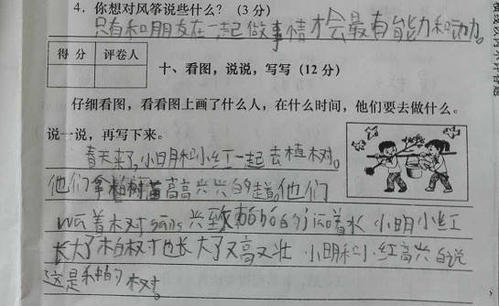 4. 你想对风筝说些什么？（3分）
只有和朋友在一起做事情才会最有能力和动力。
得分 评卷人
十、看图，说说，写写（12分）
仔细看图，看看图上画了什么人，在什么时间，他们要去做什么。
说一说，再写下来。
春天来了，小明和小红一起去植树。
他们拿柏树苗高高兴兴的走道，他们
着木对 兴致 的 着水 小明小红
长大了柏树也长大了又高又壮 小明和小红高兴白说
这是种的树。